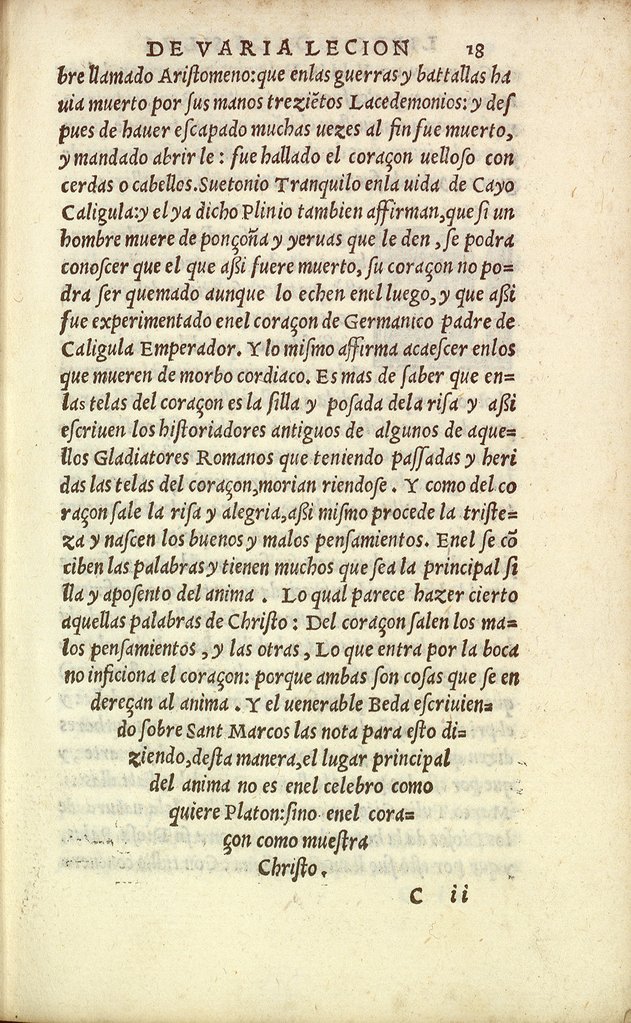 DE VARIA LECION 18
bre llamado Ariſtomeno: que enlas guerras y battallas ha
uia muerto por ſus manos treziẽtos Lacedemonios: y deſ
pues de hauer eſcapado muchas uezes al fin fue muerto,
y mandado abrir le: fue hallado el coraçon uelloſo con
cerdas o cabellos. Suetonio Tranquilo enla uida de Cayo
Caligula: y el ya dicho Plinio tambien affirman, que ſi un
hombre muere de ponçoña y yeruas que le den, ſe podra
conoſcer que el que aßi fuere muerto, ſu coraçon no po=
dra ſer quemado aunque lo echen enel luego, y que aßi
fue experimentado enel coraçon de Germanico padre de
Caligula Emperador. Y lo miſmo affirma acaeſcer enlos
que mueren de morbo cordiaco. Es mas de ſaber que en=
las telas del coraçon es la ſilla y poſada dela riſa y aßi
eſcriuen los hiſtoriadores antiguos de algunos de aque=
llos Gladiatores Romanos que teniendo paſſadas y heri
das las telas del coraçon, morian riendoſe. Y como del co
raçon ſale la riſa y alegria, aßi miſmo procede la triſte=
za y naſcen los buenos y malos penſamientos. Enel ſe cõ
ciben las palabras y tienen muchos que ſea la principal ſi
lla y apoſento del anima. Lo qual parece hazer cierto
aquellas palabras de Chriſto: Del coraçon ſalen los ma=
los penſamientos, y las otras, Lo que entra por la boca
no inficiona el coraçon: porque ambas ſon coſas que ſe en
dereçan al anima. Y el uenerable Beda eſcriuien=
do ſobre Sant Marcos las nota para eſto di=
ziendo, deſta manera, el lugar principal
del anima no es enel celebro como
quiere Platon: ſino enel cora=
çon como mueſtra
Chriſto.
C ii